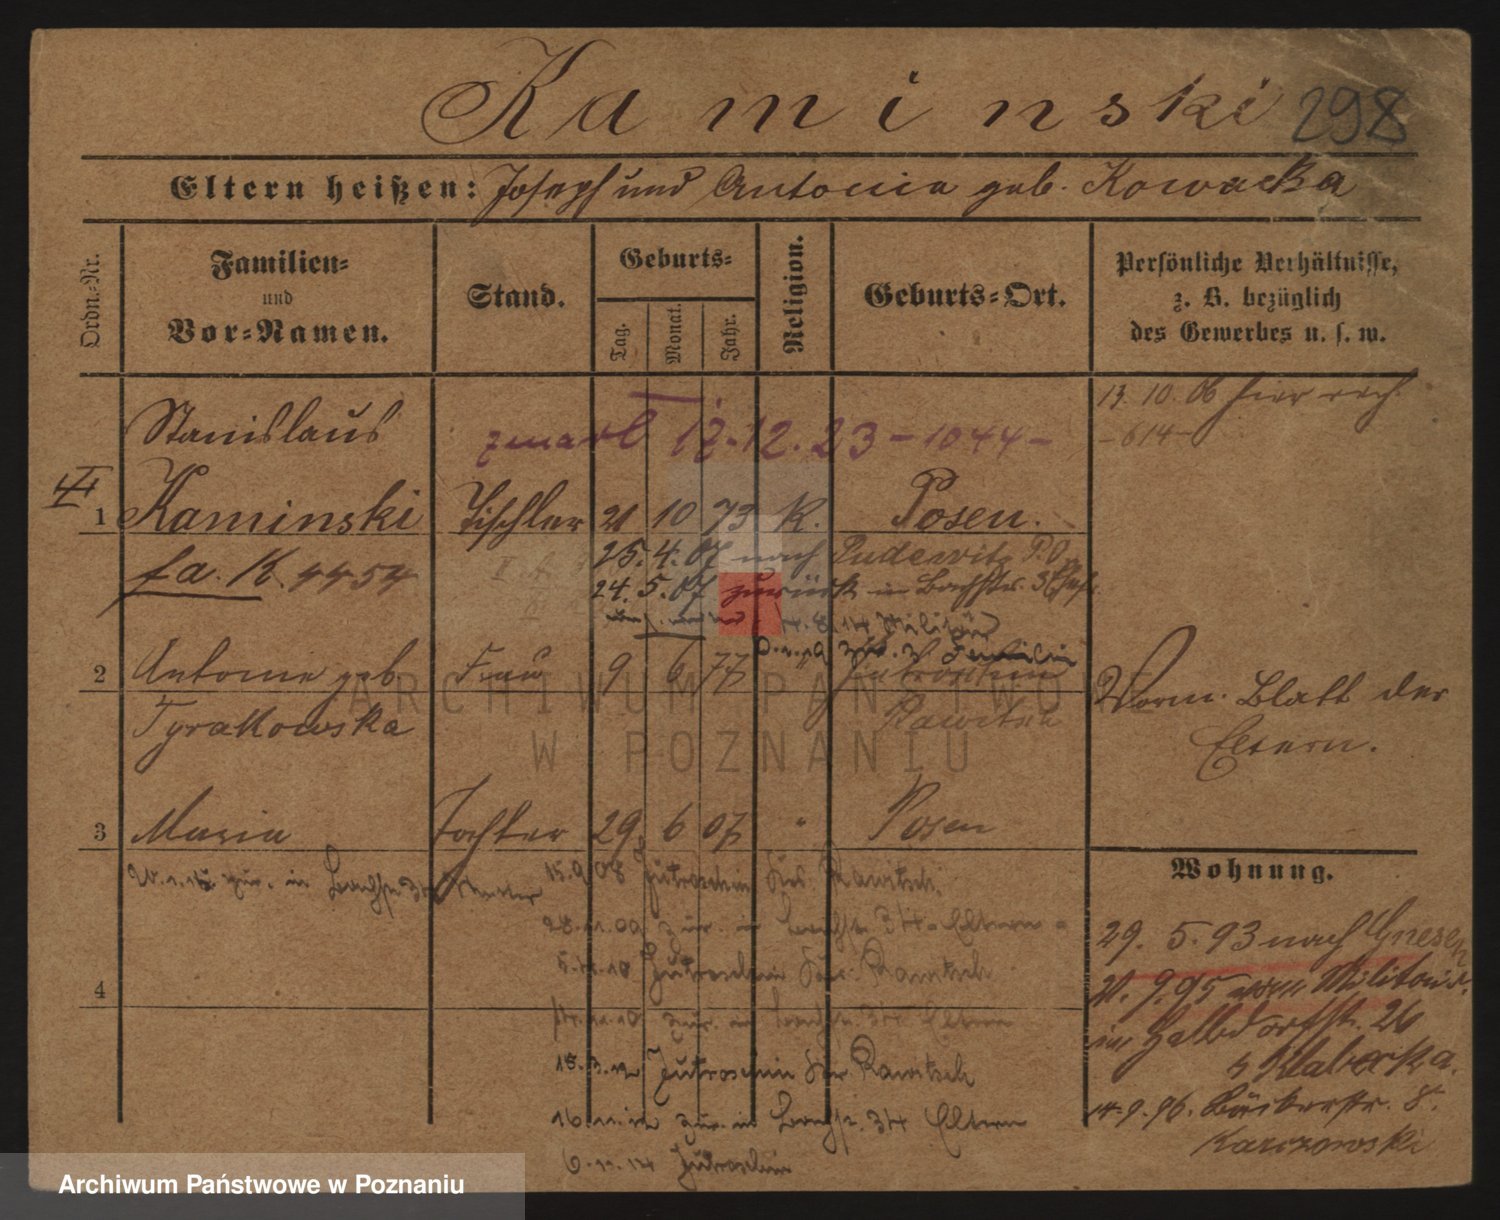 Kaminski 298
Eltern heißen: Joseph und Antonia geb. Kowacka
Ordn.-Nr.
Familien-
und
Vor-Namen.
Stand.
Geburts-
Tag.
Monat.
Jahr.
Religion.
Geburts-Ort.
Persönliche Verhältnisse,
z. B. bezüglich
des Gewerbes u. s. w.
13. 10. 06 hier
- 614 -
Stanislaus
zmarł 17.12.23 - 1044 -
1 Kaminski Tischler 21 10 73 K. Posen.
fa. K. 4454
25. 4. 07 nach Pudewitz P.O.
24. 5. 07 zurück in
14. 8. 14 Militär
zur. z. Familie
2 Antonie geb Frau 9 6 77 Jutroschin
Tyrakowska Rawitsch
Vorm. Blatt der
Eltern.
3 Maria Tochter 29. 6 07 " Posen
zur. in
15.9.08 Jutroschin Krs. Rawitsch.
28.11.09 zur. in 34 - Eltern -
Jutroschin Kr. Rawitsch
4
zur. in 34 Eltern
15.3.12 Jutroschin Kr. Rawitsch
16.11.12 zur. in 34 Eltern
6.11.14 Jutroschin
Wohnung.
29. 5. 93 nach Gnesen
21. 9. 95 vom Militair.
in Halbdorfstr. 26
b Klabecka.
14.9.96. Bäckerstr. 8.
Karczewski
ARCHIWUM PAŃSTWOWE
W POZNANIU
Archiwum Państwowe w Poznaniu